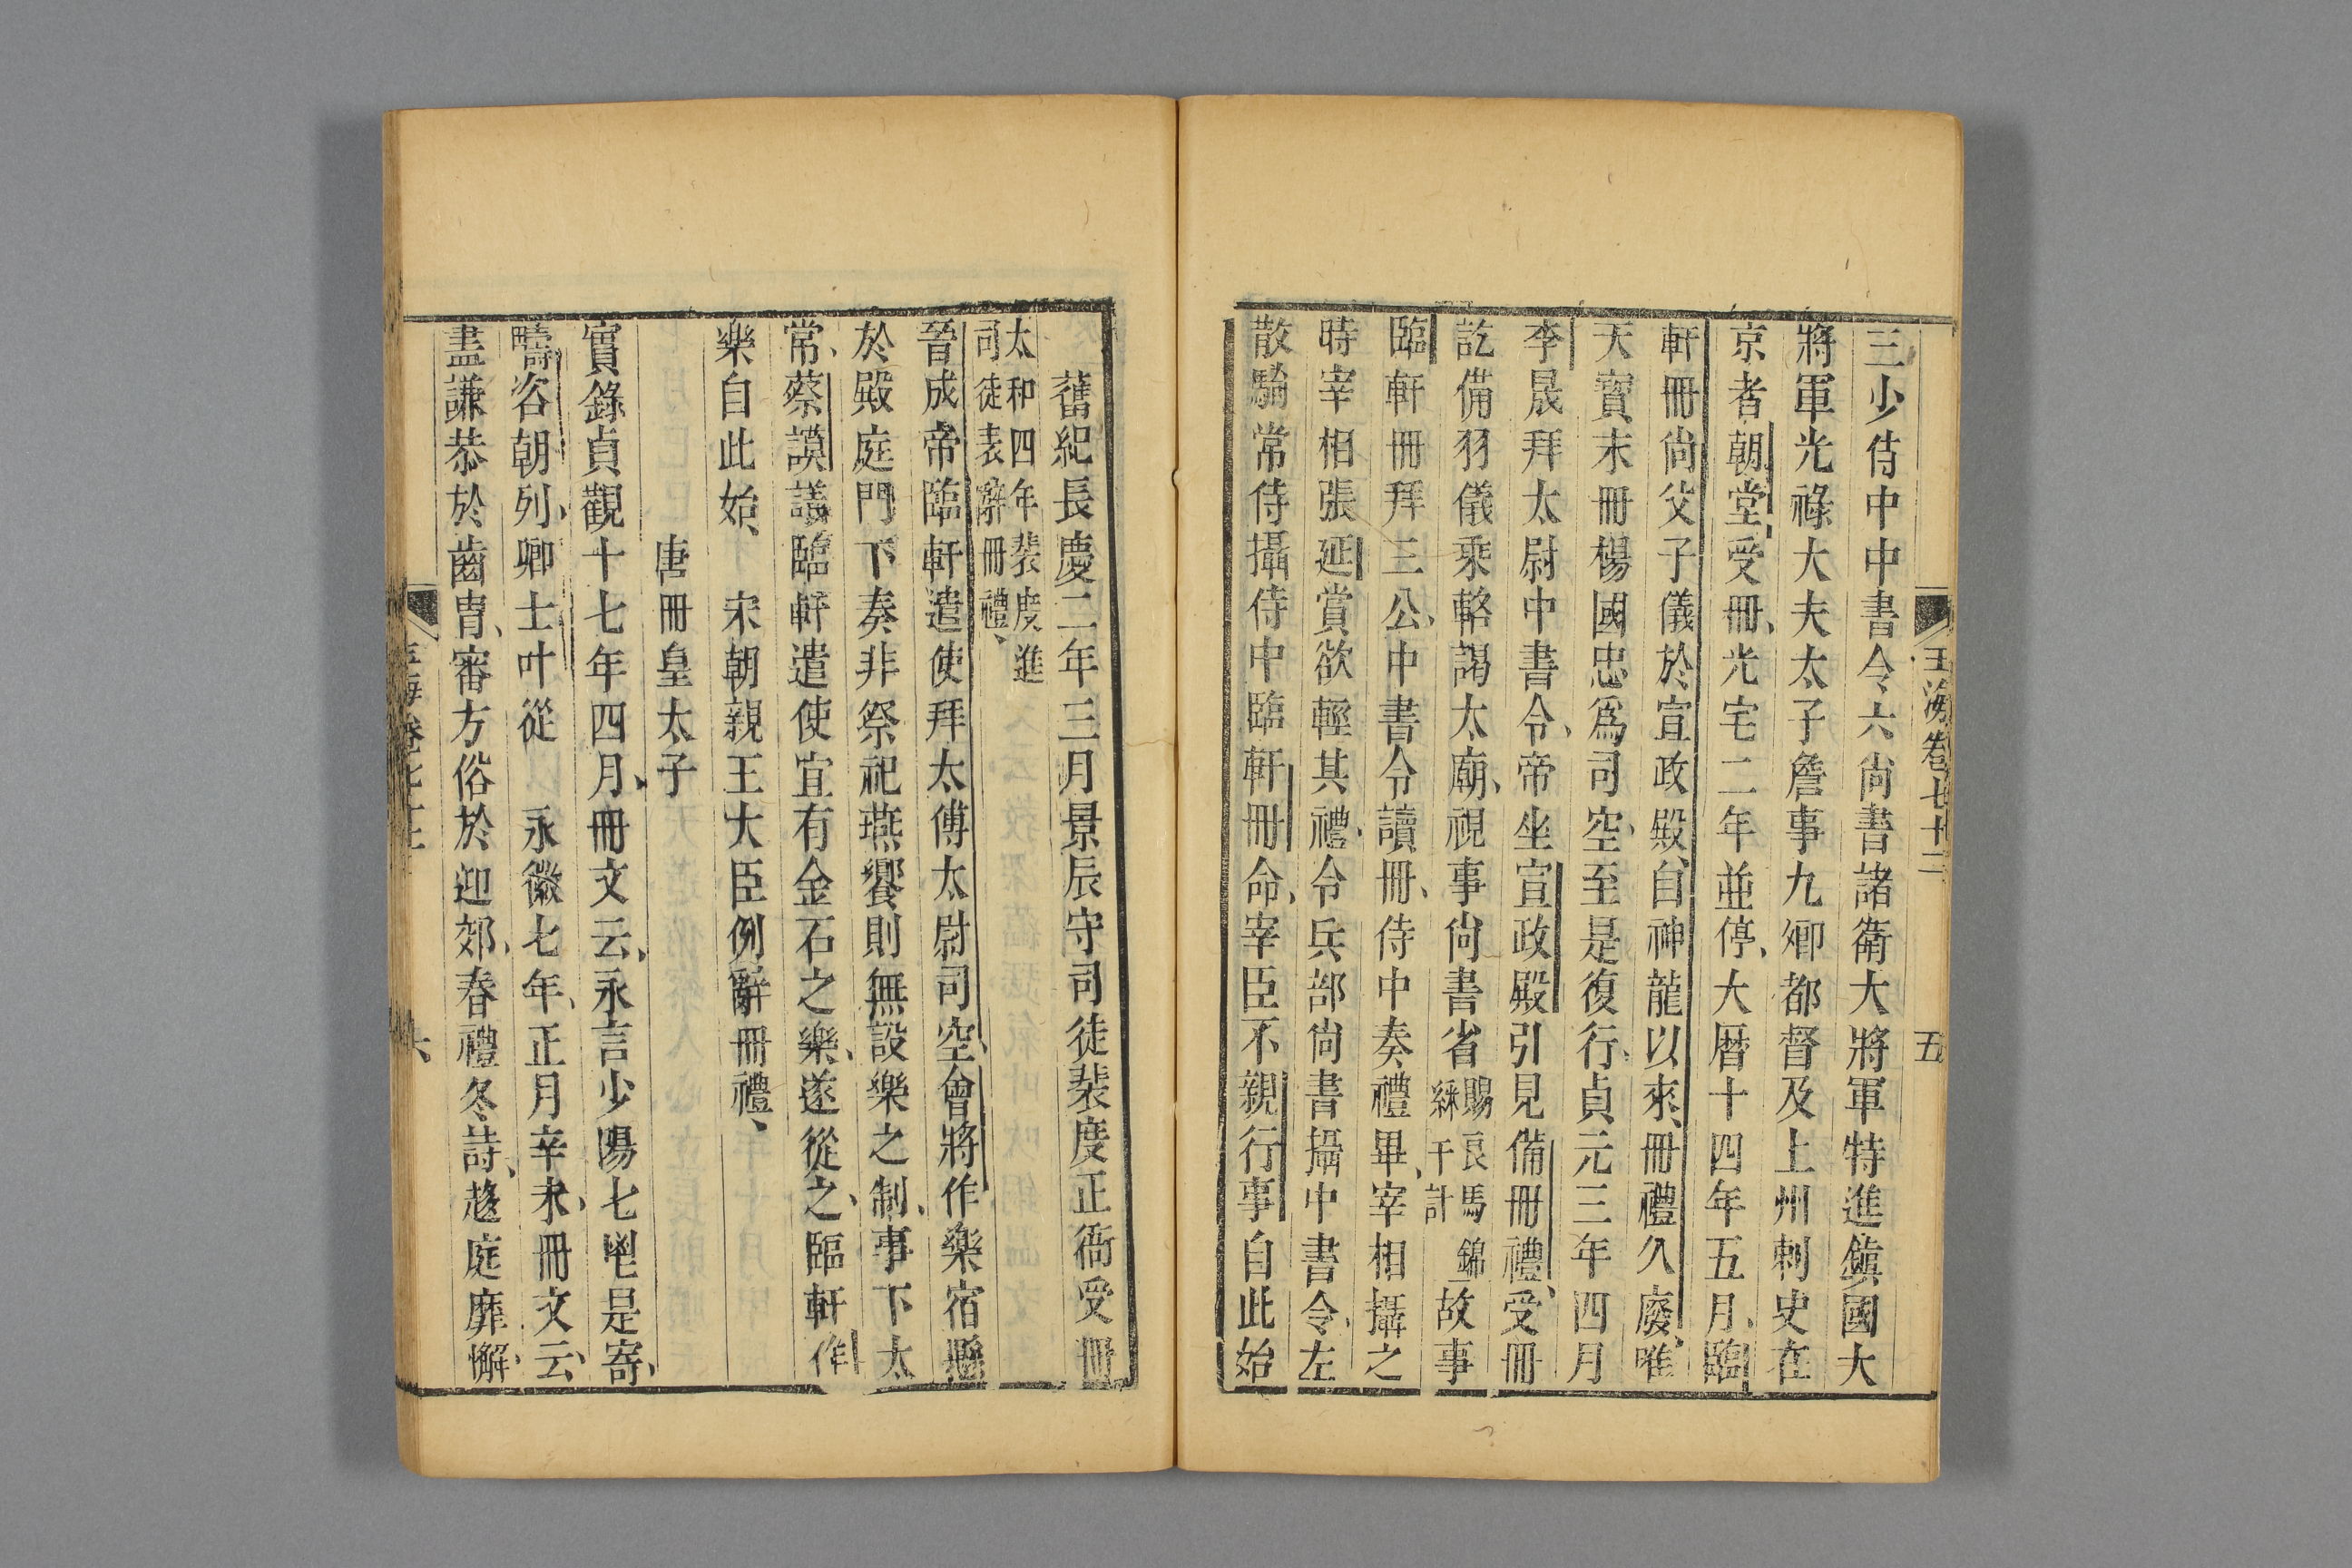 玉海卷七十三
五
三少侍中中書令六尚書諸衛大將軍特進鎮國大
將軍光祿大夫太子詹事九卿都督及上州刺史在
京者朝堂受冊光宅二年並停大曆十四年五月臨
軒冊尚父子儀於宣政殿自神龍以來冊禮久廢唯
天寳末冊楊國忠爲司空至是復行貞元三年四月
李晟拜太尉中書令帝坐宣政殿引見備冊禮受冊
訖備羽儀乘輅謁太廟視事尚書省賜良馬錦綵千計故事
臨軒冊拜三公中書令讀冊侍中奏禮畢宰相攝之
時宰相張延賞欲輕其禮令兵部尚書攝中書令左
散騎常侍攝侍中臨軒冊命宰臣不親行事自此始
舊紀長慶二年三月景辰守司徒裴度正衙受冊
太和四年裴度進司徒表辭冊禮
晉成帝臨軒遣使拜太傅太尉司空會將作樂宿懸
於殿庭門下奏非祭祀燕饗則無設樂之制事下太
常蔡謨議臨軒遣使宜有金石之樂遂從之臨軒作
樂自此始 宋朝親王大臣例辭冊禮
唐冊皇太子
實錄貞觀十七年四月冊文云永言少陽七鬯是寄
疇咨朝列卿士叶從 永徽七年正月辛未冊文云
盡謙恭於齒胄審方俗於迎郊春禮冬詩趍庭靡懈
六